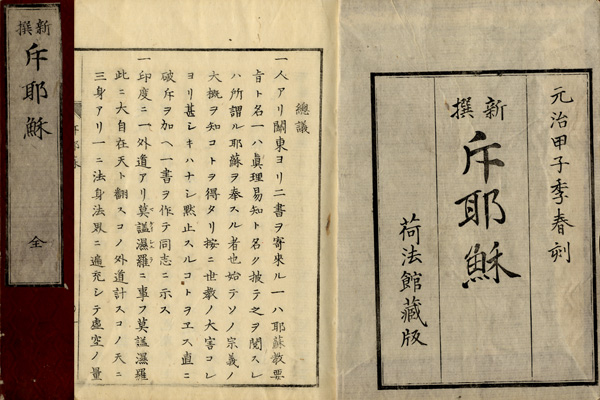 元治甲子季春刻
新撰
斥耶穌
荷法館藏版
總議
一人アリ關東ヨリ二書ヲ寄來ル一ハ耶蘇教要
旨ト名一ハ眞理易知ト名ク披テ之ヲ閲スレ
ハ所謂ル耶蘇ヲ奉スル者也始テソノ宗義ノ
大概ヲ知コトヲ得タリ按ニ世教ノ大害コレ
ヨリ甚シキハナシ黙止スルコトヲヱス直ニ
破斥ヲ加ヘ一書ヲ作テ同志ニ示ス
一印度ニ一外道アリ莫醯濕羅ニ事フ莫醯濕羅
此ニ大自在天ト翻スコノ外道計スコノ天ニ
三身アリ一ニ法身法界ニ遍充シテ虚空ノ量
新撰
斥耶穌
全